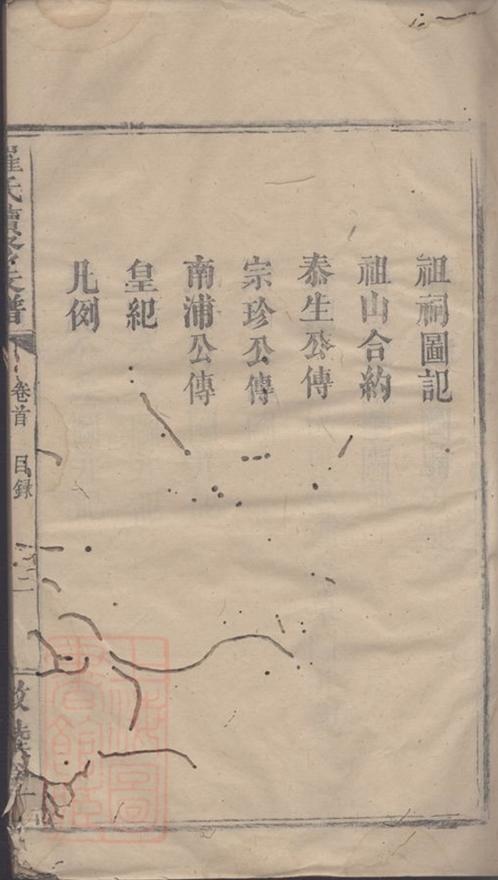 祖祠圖記
祖山合約
泰生公傳
宗珍公傳
南浦公傳
皇紀
凡例
氏續修族譜
卷首 目録